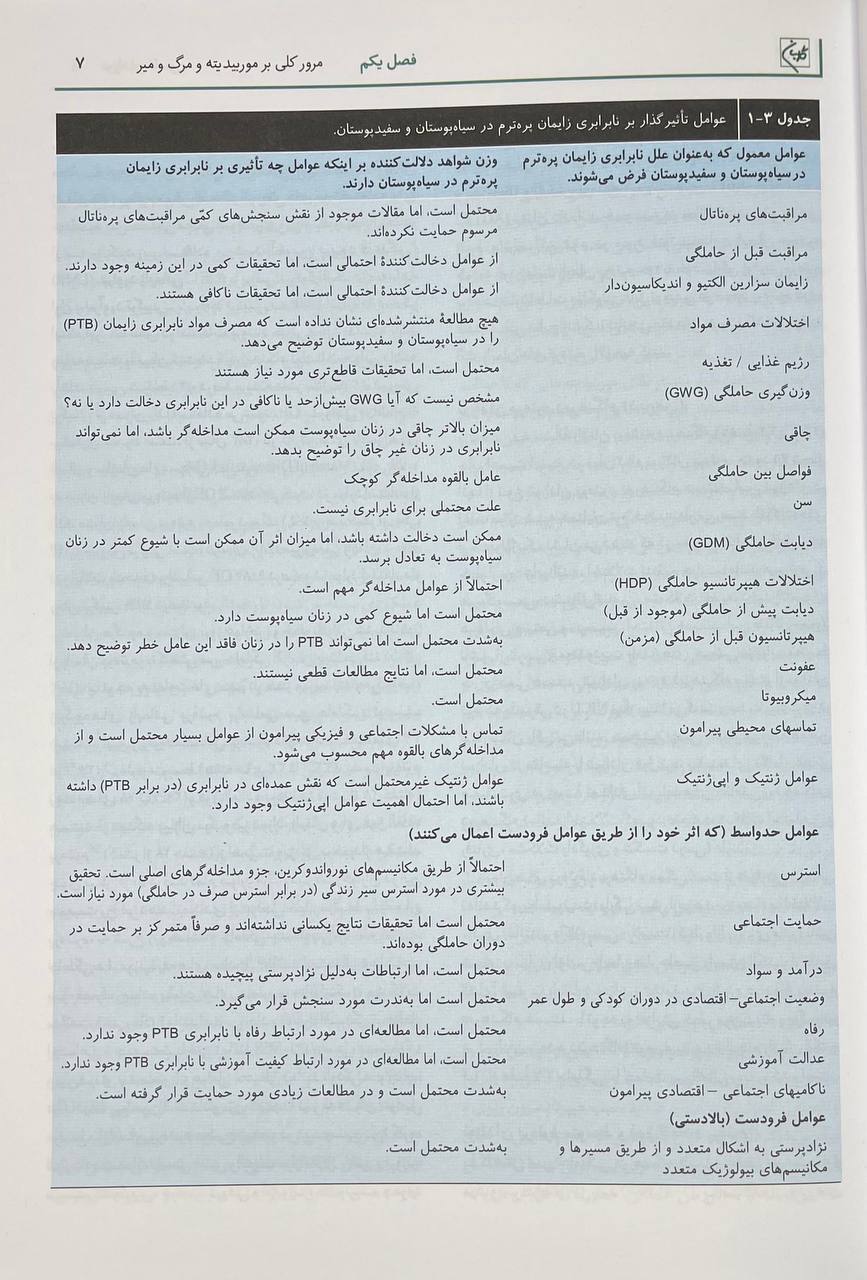 فصل یکم مرور کلی بر موربیدیته و مرگ و میر ۷
جدول ۳-۱ عوامل تأثیرگذار بر نابرابری زایمان پره‌ترم در سیاه‌پوستان و سفیدپوستان.
عوامل معمول که به‌عنوان علل نابرابری زایمان پره‌ترم
در سیاه‌پوستان و سفیدپوستان فرض می‌شوند.
وزن شواهد دلالت‌کننده بر اینکه عوامل چه تأثیری بر نابرابری زایمان
پره‌ترم در سیاه‌پوستان دارند.
مراقبت‌های پره‌ناتال
محتمل است، اما مقالات موجود از نقش سنجش‌های کمّی مراقبت‌های پره‌ناتال
مرسوم حمایت نکرده‌اند.
مراقبت قبل از حاملگی
از عوامل دخالت‌کنندهٔ احتمالی است، اما تحقیقات کمی در این زمینه وجود دارند.
زایمان سزارین الکتیو و اندیکاسیون‌دار
از عوامل دخالت‌کنندهٔ احتمالی است، اما تحقیقات ناکافی هستند.
اختلالات مصرف مواد
هیچ مطالعهٔ منتشرشده‌ای نشان نداده است که مصرف مواد نابرابری زایمان (PTB)
را در سیاه‌پوستان و سفیدپوستان توضیح می‌دهد.
رژیم غذایی / تغذیه
محتمل است، اما تحقیقات قاطع‌تری مورد نیاز هستند
وزن‌گیری حاملگی (GWG)
مشخص نیست که آیا GWG بیش‌ازحد یا ناکافی در این نابرابری دخالت دارد یا نه؟
چاقی
میزان بالاتر چاقی در زنان سیاه‌پوست ممکن است مداخله‌گر باشد، اما نمی‌تواند
نابرابری در زنان غیر چاق را توضیح بدهد.
فواصل بین حاملگی
عامل بالقوه مداخله‌گر کوچک
سن
علت محتملی برای نابرابری نیست.
دیابت حاملگی (GDM)
ممکن است دخالت داشته باشد، اما میزان اثر آن ممکن است با شیوع کمتر در زنان
سیاه‌پوست به تعادل برسد.
اختلالات هیپرتانسیو حاملگی (HDP)
احتمالاً از عوامل مداخله‌گر مهم است.
دیابت پیش از حاملگی (موجود از قبل)
محتمل است اما شیوع کمی در زنان سیاه‌پوست دارد.
هیپرتانسیون قبل از حاملگی (مزمن)
به‌شدت محتمل است اما نمی‌تواند PTB را در زنان فاقد این عامل خطر توضیح دهد.
عفونت
محتمل است، اما نتایج مطالعات قطعی نیستند.
میکروبیوتا
محتمل است.
تماسهای محیطی پیرامون
تماس با مشکلات اجتماعی و فیزیکی پیرامون از عوامل بسیار محتمل است و از
مداخله‌گرهای بالقوه مهم محسوب می‌شود.
عوامل ژنتیک و اپی‌ژنتیک
عوامل ژنتیک غیرمحتمل است که نقش عمده‌ای در نابرابری (در برابر PTB) داشته
باشند، اما احتمال اهمیت عوامل اپی‌ژنتیک وجود دارد.
عوامل حدواسط (که اثر خود را از طریق عوامل فرودست اعمال می‌کنند)
استرس
احتمالاً از طریق مکانیسم‌های نورواندوکرین، جزو مداخله‌گرهای اصلی است. تحقیق
بیشتری در مورد استرس سیر زندگی (در برابر استرس صرف در حاملگی) مورد نیاز است.
حمایت اجتماعی
محتمل است اما تحقیقات نتایج یکسانی نداشته‌اند و صرفاً متمرکز بر حمایت در
دوران حاملگی بوده‌اند.
درآمد و سواد
محتمل است، اما ارتباطات به‌دلیل نژادپرستی پیچیده هستند.
وضعیت اجتماعی- اقتصادی در دوران کودکی و طول عمر
محتمل است اما به‌ندرت مورد سنجش قرار می‌گیرد.
رفاه
محتمل است، اما مطالعه‌ای در مورد ارتباط رفاه با نابرابری PTB وجود ندارد.
عدالت آموزشی
محتمل است، اما مطالعه‌ای در مورد ارتباط کیفیت آموزشی با نابرابری PTB وجود ندارد.
ناکامیهای اجتماعی - اقتصادی پیرامون
به‌شدت محتمل است و در مطالعات زیادی مورد حمایت قرار گرفته است.
عوامل فرودست (بالادستی)
نژادپرستی به اشکال متعدد و از طریق مسیرها و
مکانیسم‌های بیولوژیک متعدد
به‌شدت محتمل است.